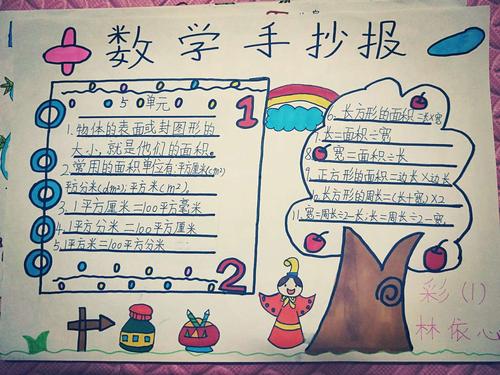 数学手抄报
5单元
1
1.物体的表面或封图形的
大小,就是他们的面积。
2.常用的面积单位有:平方厘米(cm²)
平方分米(dm²),平方米(m²)。
3.1平方厘米=100平方毫米
4.1平方分米=100平方厘米
5.1平方米=100平方分米
2
6.长方形的面积=长×宽
7.长=面积÷宽
8.宽=面积÷长
9.正方形的面积=边长×边长
10.长方形的周长=(长+宽)×2
11.宽=周长÷2-长;长=周长÷2-宽。
彩(1)
林依心